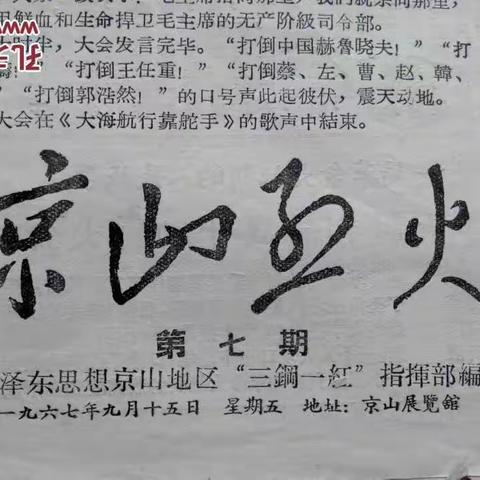 毛主席指向那里，我们就杀向那里，
用鲜血和生命捍卫毛主席的无产阶級司令部。
时半，大会发言完毕。“打倒中国赫魯晓夫！”“打
“打倒王任重！”“打倒蔡、左、曹、赵、韓、
“打倒郭浩然！”的口号声此起彼伏，震天动地。
大会在《大海航行靠舵手》的歌声中結束。
京山烈火
第七期
泽东思想京山地区“三鋼一紅”指揮部編
一九六七年九月十五日 星期五 地址：京山展覽舘